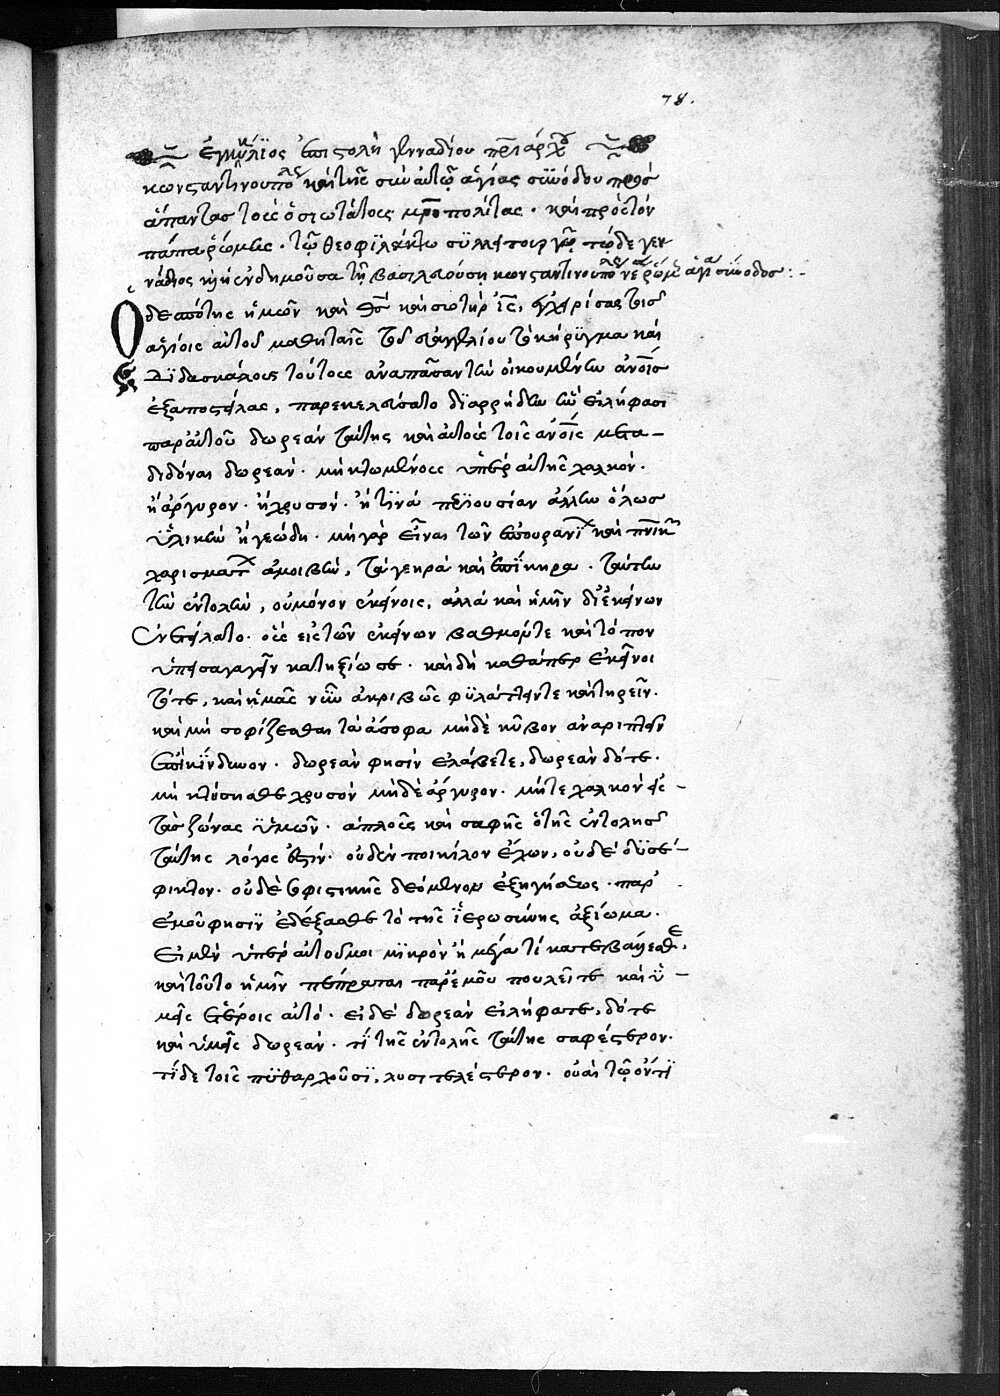 78.
ἐγκύκλιος ἐπιστολὴ γενναδίου πριάρχου
κωνσταντινουπόλεως καὶ τῆς σὺν αὐτῷ ἁγίας συνόδου πρὸς
ἅπαντας τοὺς ὁσιωτάτους μητροπολίτας · καὶ πρὸς τὸν
πάπα ῥώμης · τῷ θεοφιλεστάτω συλλειτουργῷ τῶδε γεν
νάδιος καὶ ἡ ἐνδημοῦσα τῇ βασιλευούσῃ κωνσταντινουπόλει νέα ῥώμη ἁγία σύνοδος :-
Ὁ δεσπότης ἡμῶν καὶ θς καὶ σωτὴρ ις, ἐγχειρίσας τοῖς
ἁγίοις αὐτοῦ μαθηταῖς τοῦ εὐαγγελίου τὸ κήρυγμα καὶ
διδασκάλους τούτους ἀνὰ πᾶσαν τὴν οἰκουμένην ἀνοις
ἐξαποστείλας, παρεκελεύσατο διαρρήδην ἣν εἰλήφασι
παρ αὐτοῦ δωρεὰν ταύτης καὶ αὐτοὺς τοῖς ἀνοις μετα-
διδόναι δωρεάν · μὴ κτωμένους ὑπὲρ αὐτῆς χαλκὸν ·
ἢ ἄργυρον · ἢ χρυσὸν · ἢ τινὰ περιουσίαν ἄλλην ὅλως
ὑλικὴν ἢ γεώδη · μὴ γὰρ εἶναι τῶν ἐπουρανίων καὶ πνικῶν
χαρισμάτων ἀμοιβὴν, τὰ γεηρὰ καὶ ἐπίκηρα · ταύτην
τὴν ἐντολὴν, οὐ μόνον ἐκείνοις, ἀλλὰ καὶ ἡμῖν δι ἐκείνων
ἐνετείλατο · οὓς εἰς τῶν ἐκείνων βαθμόν τε καὶ τόπον
ὑπεισαγαγεῖν κατηξίωσε · καὶ δὴ καθάπερ ἐκεῖνοι
τότε, καὶ ἡμᾶς νῦν ἀκριβῶς φυλάττειν τε καὶ τηρεῖν ·
καὶ μὴ σοφίζεσθαι τὰ ἄσοφα μηδὲ κῦβον ἀναρίπτειν
ἐπικίνδυνον · δωρεὰν φησὶν ἐλάβετε, δωρεὰν δότε ·
μὴ κτήσησθε χρυσὸν μηδὲ ἄργυρον · μήτε χαλκὸν εἰς -
τὰς ζώνας ὑμῶν · ἁπλοῦς καὶ σαφὴς ὁ τῆς ἐντολῆς
ταύτης λόγος ἐστίν · οὐδὲν ποικίλον ἔχων, οὐδὲ δυσέ-
φικτον · οὐδὲ σοφιστικῆς δεόμενον ἐξηγήσεως · παρ
ἐμοῦ φησὶν ἐδέξασθε τὸ τῆς ἱερωσύνης ἀξίωμα ·
εἰ μὲν ὑπὲρ αὐτοῦ μοι μικρὸν ἢ μέγα τί κατεβάλεσθε,
καὶ τοῦτο ἡμῖν πέπραται παρ ἐμοῦ πουλεῖτε καὶ ὑ-
μεῖς ἑτέροις αὐτό · εἰ δὲ δωρεὰν εἰλήφατε, δότε
καὶ ὑμεῖς δωρεάν · τί τῆς ἐντολῆς ταύτης σαφέστερον ·
τί δε τοῖς πειθαρχοῦσι, λυσιτελέστερον · οὐαὶ τῷ ὄντι